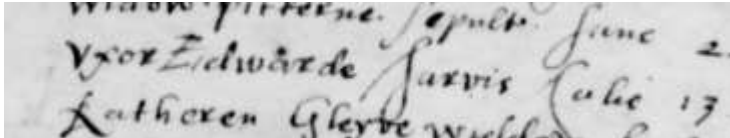 widow pitterne. sepult. June 2
Vxor Edwarde Jarvis Julie 13
Katheren Gleyve